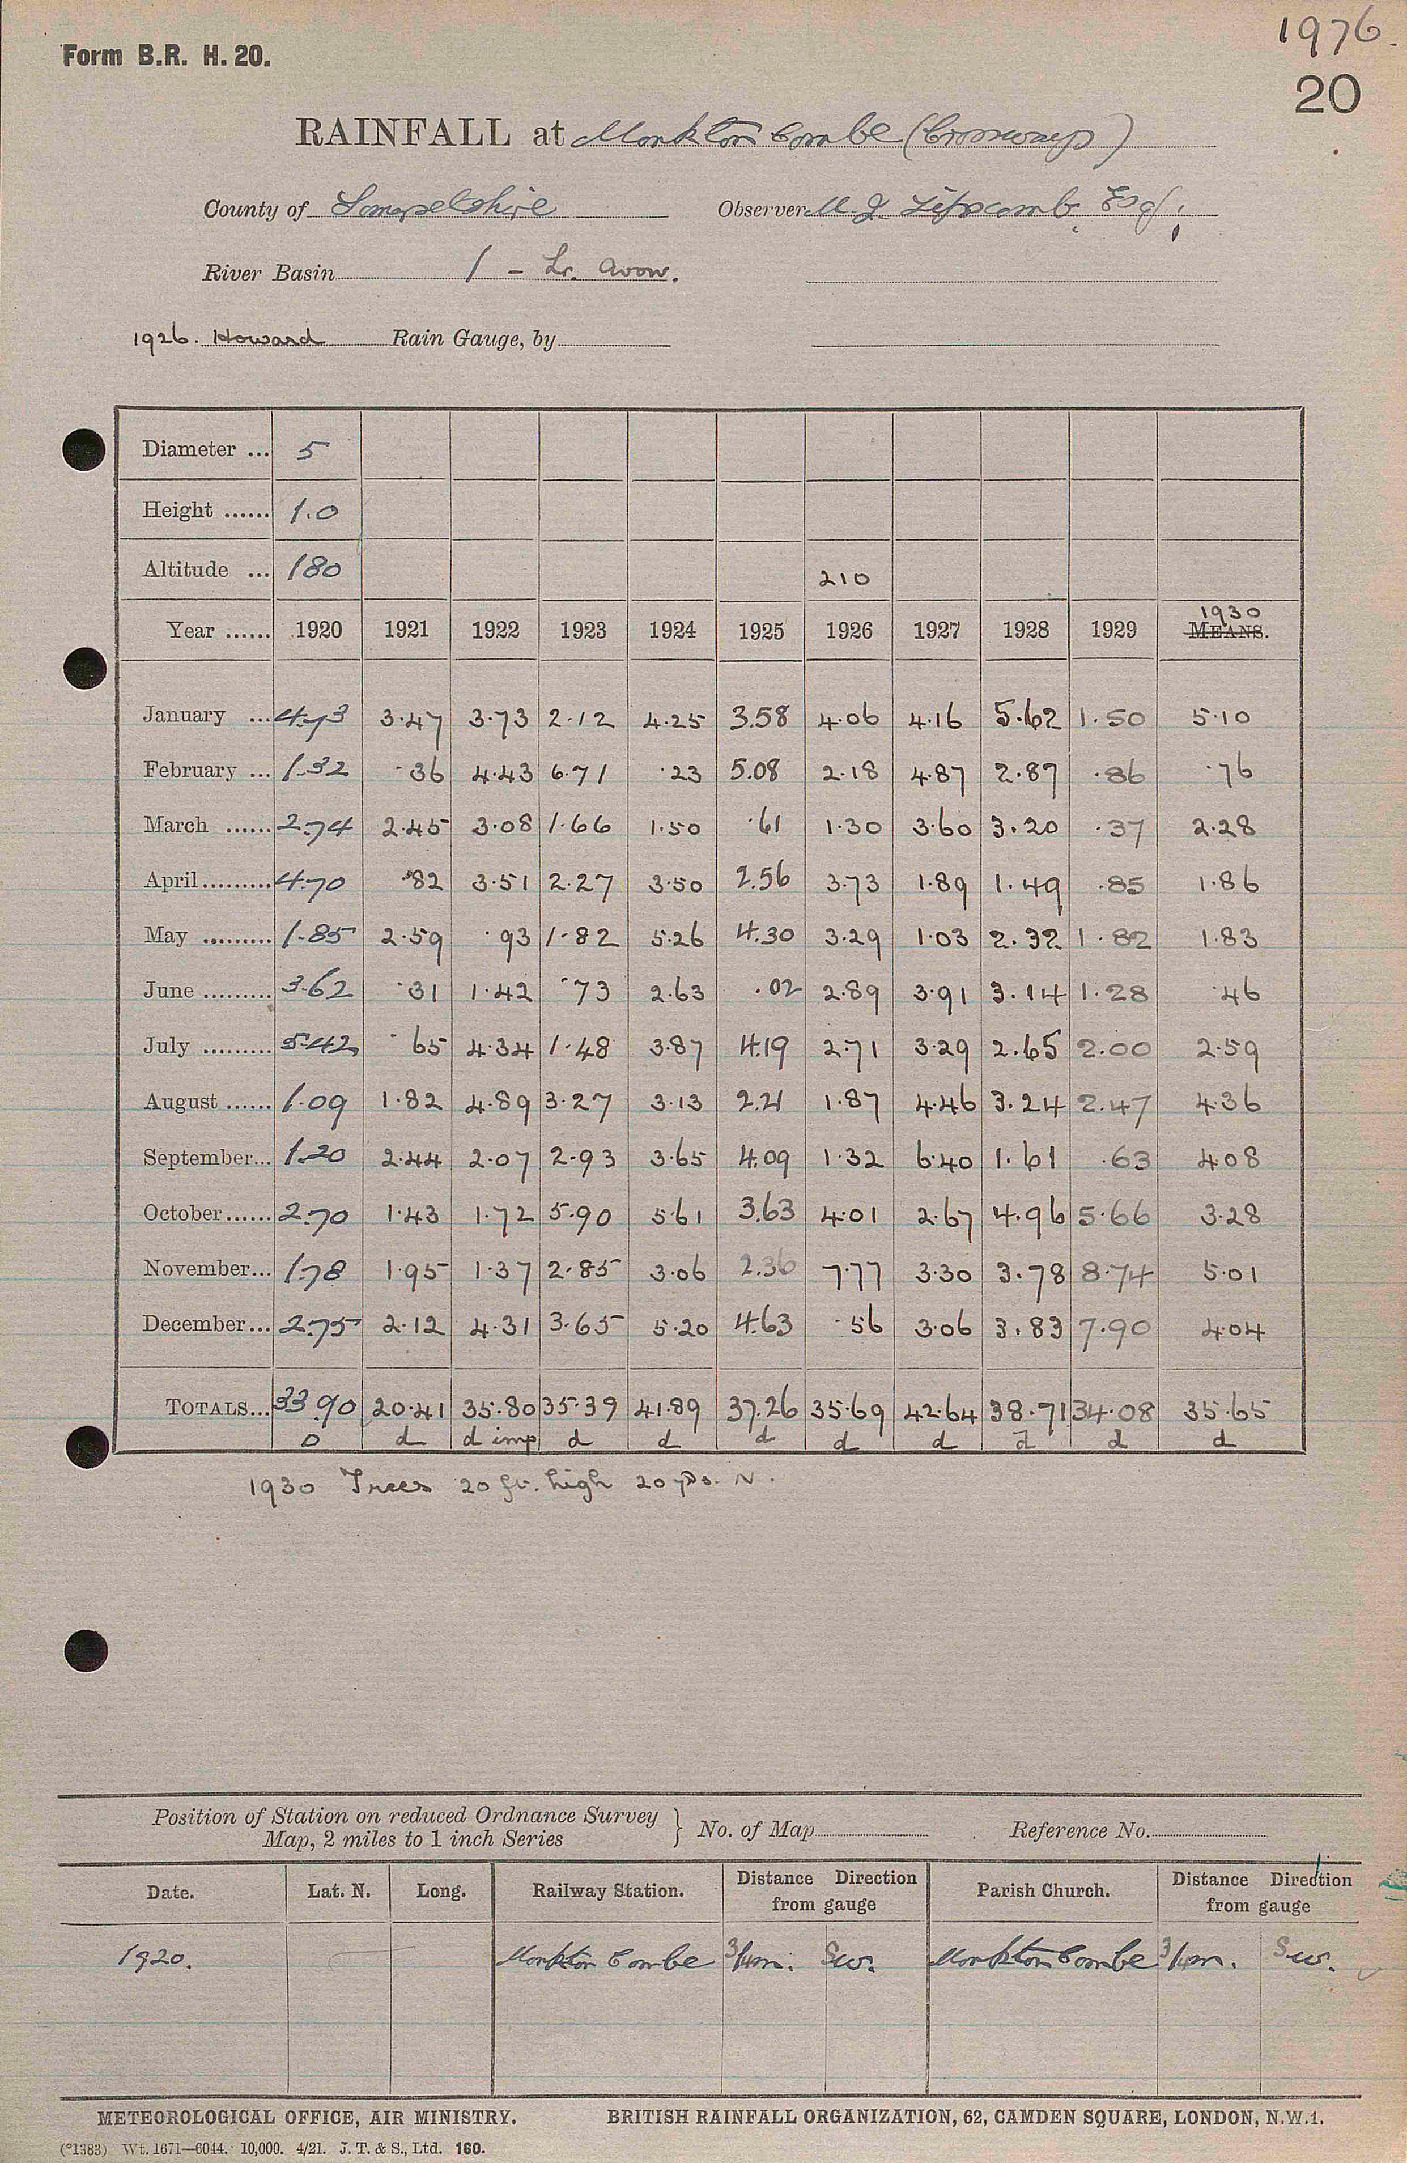 1976.
Form B.R. H. 20.
20
RAINFALL at Monkton Combe (Crossways)
County of Somersetshire Observer M. J. Lipscomb Esq.
River Basin 1 - Lr. Avon.
1926. Howard Rain Gauge, by
Diameter ... 5
Height ...... 1.0
Altitude ... 180 210
1930
Year ...... 1920 1921 1922 1923 1924 1925 1926 1927 1928 1929 MEANS.
January ... 4.73 3.47 3.73 2.12 4.25 3.58 4.06 4.16 5.62 1.50 5.10
February ... 1.32 .36 4.43 6.71 .23 5.08 2.18 4.87 2.87 .86 .76
March ...... 2.74 2.45 3.08 1.66 1.50 .61 1.30 3.60 3.20 .37 2.28
April ......... 4.70 .82 3.51 2.27 3.50 2.56 3.73 1.89 1.49 .85 1.86
May ......... 1.85 2.59 .93 1.82 5.26 4.30 3.29 1.03 2.32 1.82 1.83
June ......... 3.62 .31 1.42 .73 2.63 .02 2.89 3.91 3.14 1.28 .46
July ......... 5.42 .65 4.34 1.48 3.87 4.19 2.71 3.29 2.65 2.00 2.59
August ...... 1.09 1.82 4.89 3.27 3.13 2.21 1.87 4.46 3.24 2.47 4.36
September... 1.20 2.44 2.07 2.93 3.65 4.09 1.32 6.40 1.61 .63 4.08
October...... 2.70 1.43 1.72 5.90 5.61 3.63 4.01 2.67 4.96 5.66 3.28
November... 1.78 1.95 1.37 2.85 3.06 2.36 7.77 3.30 3.78 8.74 5.01
December... 2.75 2.12 4.31 3.65 5.20 4.63 .56 3.06 3.83 7.90 4.04
TOTALS... 33.90 20.41 35.80 35.39 41.89 37.26 35.69 42.64 38.71 34.08 35.65
D d d imp d d d d d d d d
1930 Trees 20 ft. high 20 yds. N.
Position of Station on reduced Ordnance Survey
Map, 2 miles to 1 inch Series } No. of Map Reference No.
Date. Lat. N. Long. Railway Station. Distance Direction from gauge Parish Church. Distance Direction from gauge
1920. Monkton Combe 3/4 m. SW. Monkton Combe 3/4 m. SW.
METEOROLOGICAL OFFICE, AIR MINISTRY. BRITISH RAINFALL ORGANIZATION, 62, CAMDEN SQUARE, LONDON, N.W.1.
(*1383) Wt. 1671—6044. 10,000. 4/21. J. T. & S., Ltd. 160.